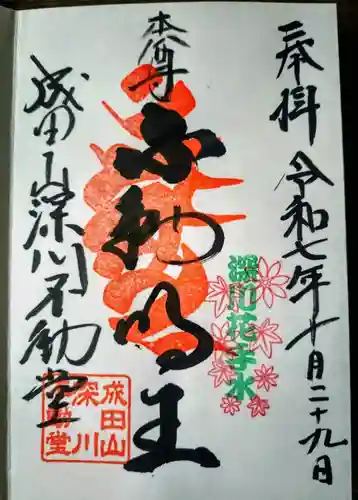 奉拝 令和七年十月二十九日
深川花手水
本尊
不動明王
成田山深川不動堂
成田山
深川
不動堂